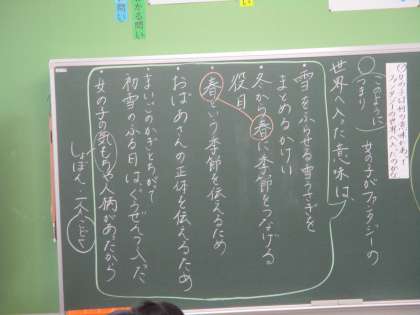 かる問い
問い
このように
つまり
女の子がファンタジーの
世界へ入った意味は、
雪をふらせる雪うさぎを
まとめるかけい
冬から春に季節をつなげる
役目
春という季節を伝えるため
おばあさんの正体を伝えるため
まいごのかぎとちがって
初雪のふる日はぐうぜん入った
女の子の気もちや人柄があったから